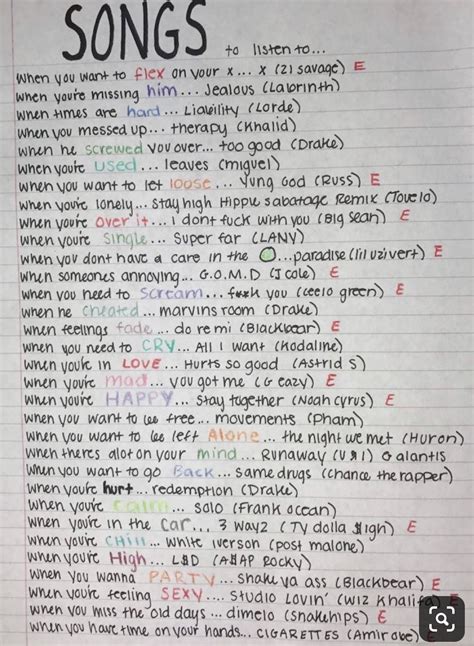 SONGS to listen to...
When you want to flex on your x... x (21 savage) E
When you're missing him... Jealous (Labrinth)
When times are hard... Liability (Lorde)
When you messed up... therapy (Khalid)
When he screwed you over... too good (Drake)
When you're used... leaves (miguel)
When you want to let loose... Yung God (Russ) E
When you're lonely... stay high Hippie Sabatage Remix (Tove lo)
When you're over it... I dont fuck with you (Big Sean) E
When you're single... Super far (LANY)
When you dont have a care in the ...paradise (lil uzi vert) E
When someones annoying... G.O.M.D (J cole) E
When you need to Scream... f**k you (ceelo green) E
When he cheated... marvins room (Drake)
When feelings fade... do re mi (Blackbear) E
When you need to CRY... All I want (Kodaline)
When you're in LOVE... Hurts so good (Astrid S)
When you're mad... you got me (G eazy) E
When you're HAPPY... Stay together (Noah cyrus) E
When you want to be free... movements (Pham)
When you want to be left Alone... the night we met (Huron)
When theres alot on your mind... Runaway (U & I) Galantis
When you want to go Back... same drugs (chance the rapper)
When you're hurt... redemption (Drake)
When you're calm... solo (Frank ocean)
When you're in the car... 3 wayz (TY dolla $igh) E
When you're CHill... white iverson (post malone)
When you're High... L$D (A$AP Rocky)
When you wanna PARTY... shake ya ass (Blackbear) E
When you're feeling SEXY... Studio Lovin' (Wiz Khalifa) E
When you miss the old days... dimelo (snakehips) E
When you have time on your hands... CIGARETTES (Amir obe) E